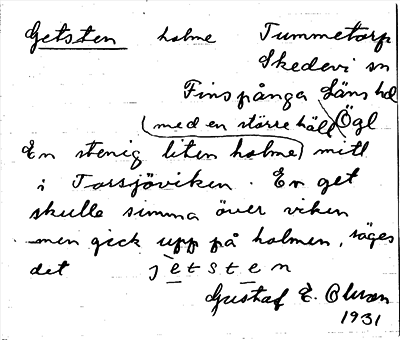 Getsten holme Tummetorp
Skedevi sn
Finspånga Läns hd
(med en större häll) Ögl
En stenig liten holme mitt
i Torsjöviken. En get
skulle simma över viken
men gick upp på holmen, säges
det jetsten
Gustaf E. Olsson
1931